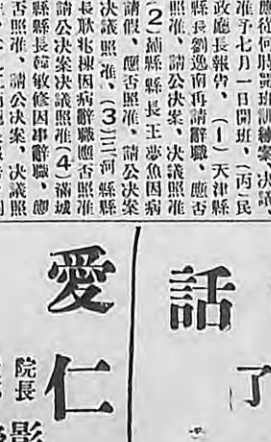 應從何時開班訓練案、決議
准予七月一日開班、(丙)民
政廳長報告、(1)天津縣
縣長劉逸南再請辭職、應否
照准、請公決案、決議照准
(2)縣縣長王夢魚因病
請假、應否照准、請公決案
決議照准、(3)三河縣縣
長耿兆棟因病辭職應否照准
請公決案決議照准(4)滿城
縣縣長韓敏修因事辭職、應
否照准、請公決案、決議照
了
話
愛仁
院長